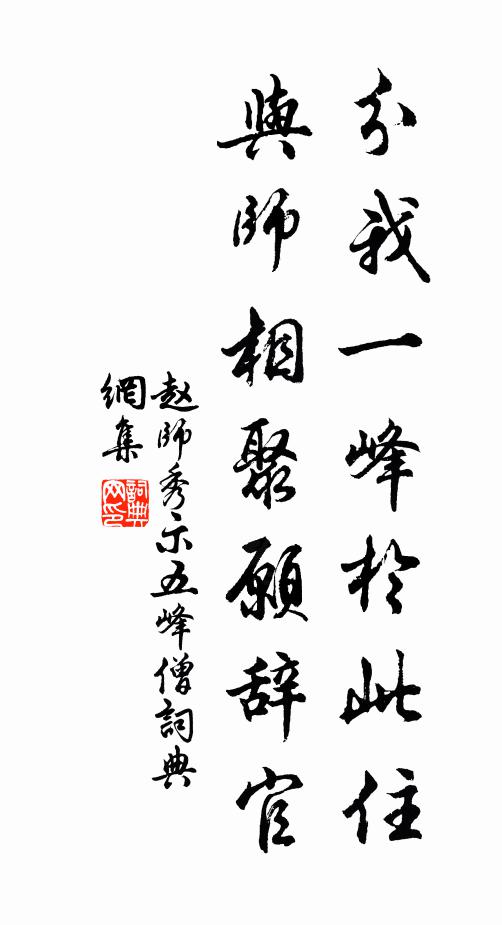 分我一峰於此住
與師相聚願辞官
赵師秀示五峰僧詞典
網集
詞典
网印